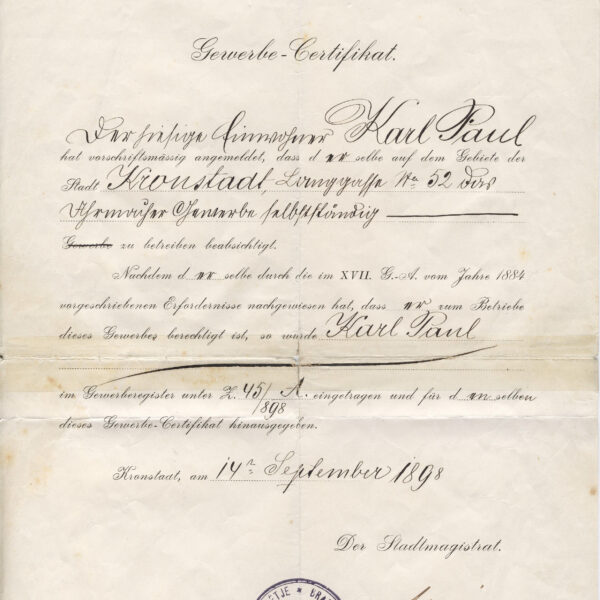 Gewerbe-Certifikat.
Der hiesige Einwohner Karl Paul
hat vorschriftsmässig angemeldet, dass d er selbe auf dem Gebiete der
Stadt Kronstadt, Langgasse No 52 das
Uhrmacher Gewerbe selbstständig
Gewerbe zu betreiben beabsichtigt.
Nachdem d er selbe durch die im XVII. G.-A. vom Jahre 1884
vorgeschriebenen Erfordernisse nachgewiesen hat, dass er zum Betriebe
dieses Gewerbes berechtigt ist, so wurde Karl Paul
im Gewerberegister unter Z. 45/898 A. eingetragen und für d en selben
dieses Gewerbe-Certifikat hinausgegeben.
Kronstadt, am 14n September 1898
Der Stadtmagistrat.